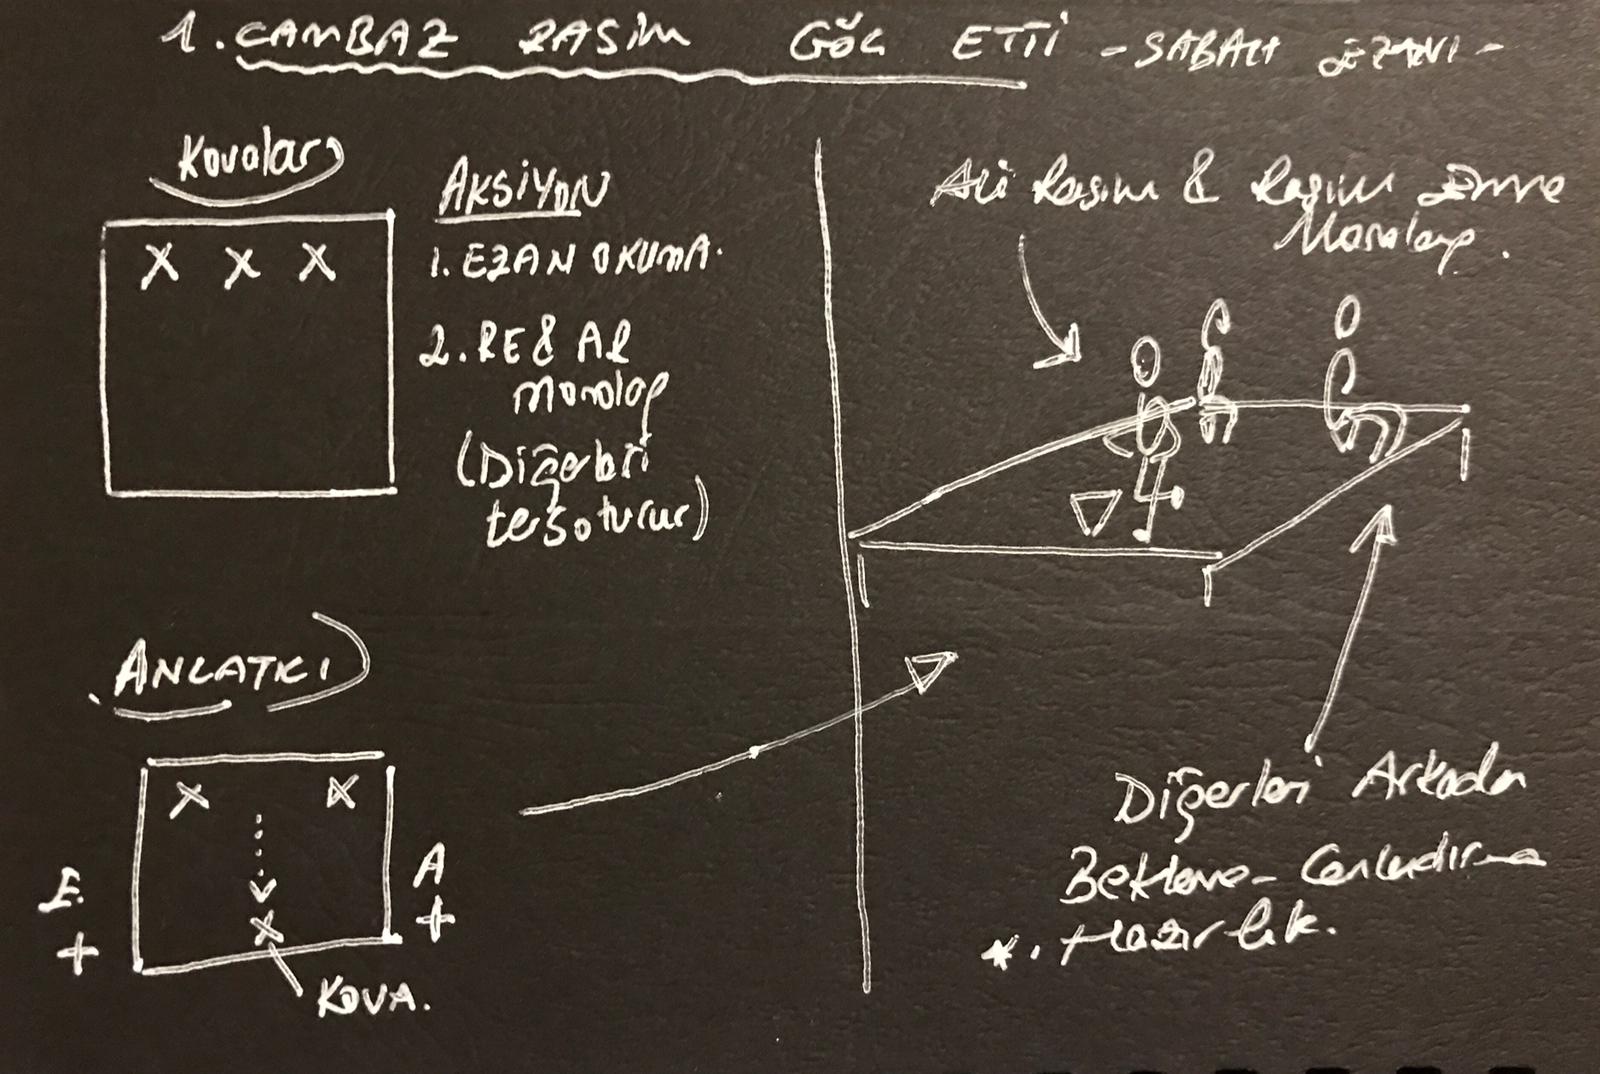 1. CAMBAZ RASİM GÖÇ ETTİ - SABAH EZANI -
Kovalar
X X X
AKSİYON
1. EZAN OKUMA.
2. RE & AR
monolog
(Diğerleri
ters oturur)
ANLATICI
X X
E. A
+ X +
KOVA.
Ali Rasim & Rasim Emre
Monolog.
Diğerleri Arkada
Bekleme - Canlandırma
*. Hazırlık.